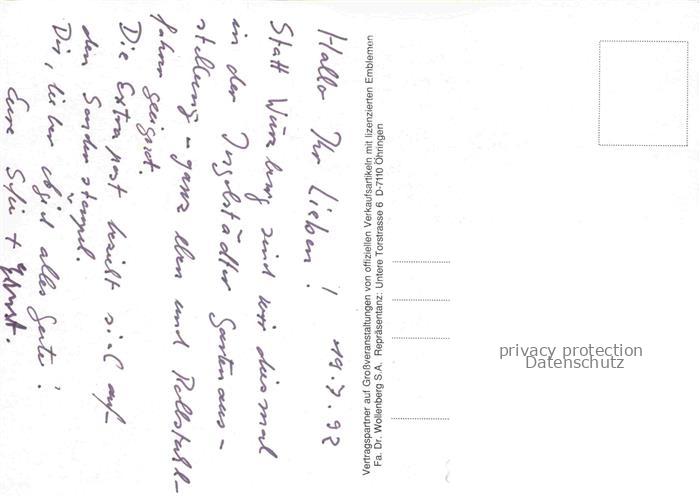 19.7.92
Hallo Ihr Lieben!
Statt Würzburg sind wir diesmal
in der Ingolstädter Gartenaus-
stellung - ganz eben und Rollstuhl-
fahrer geeignet.
Die Extrapost bezieht sich auf
den Sonderstempel.
Dir, lieber alles Gute!
Eure + Ernst.
Vertragspartner auf Großveranstaltungen von offiziellen Verkaufsartikeln mit lizenzierten Emblemen
Fa. Dr. Wollenberg S.A. Repräsentanz: Untere Torstrasse 6 D-7110 Öhringen
privacy protection
Datenschutz